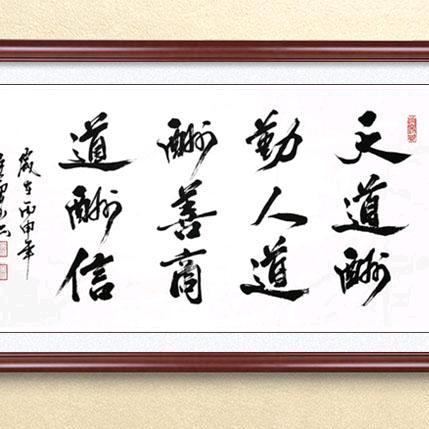 天道酬
勤人道
酬善商
道酬信
岁在丙申年